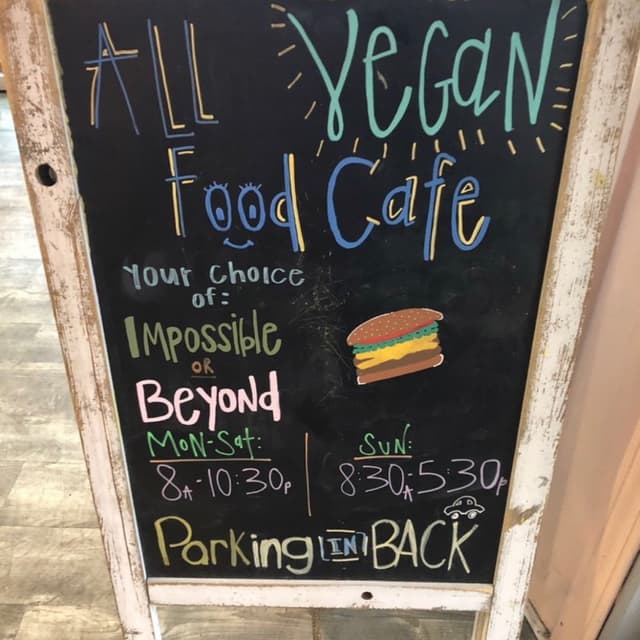 ALL VEGAN
Food Cafe
Your Choice
of:
IMpossible
OR
BeYOND
MoN-Sat:
8A-10:30P
SuN:
8:30A-5:30P
Parking IN BACK